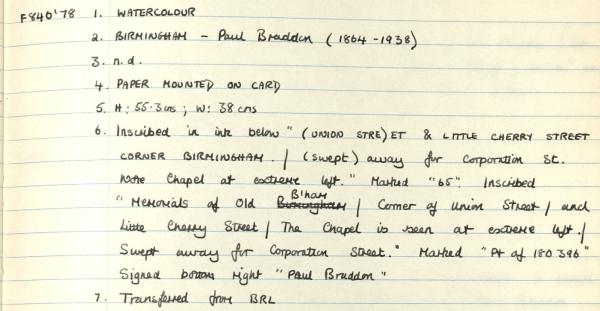 F840'78 1. WATERCOLOUR
2. BIRMINGHAM - Paul Braddon (1864-1938)
3. n.d.
4. PAPER MOUNTED ON CARD
5. H: 55.3cms ; W: 38 cms
6. Inscribed in ink below "(UNION STRE)ET & LITTLE CHERRY STREET
CORNER BIRMINGHAM. / (swept) away for Corporation St.
Note Chapel at extreme left." Marked "65". Inscribed
"Memorials of Old Birmingham B'ham / Corner of Union Street / and
Little Cherry Street / The Chapel is seen at extreme left. /
Swept away for Corporation Street." Marked "Pt of 180396"
Signed bottom right "Paul Braddon"
7. Transferred from BRL